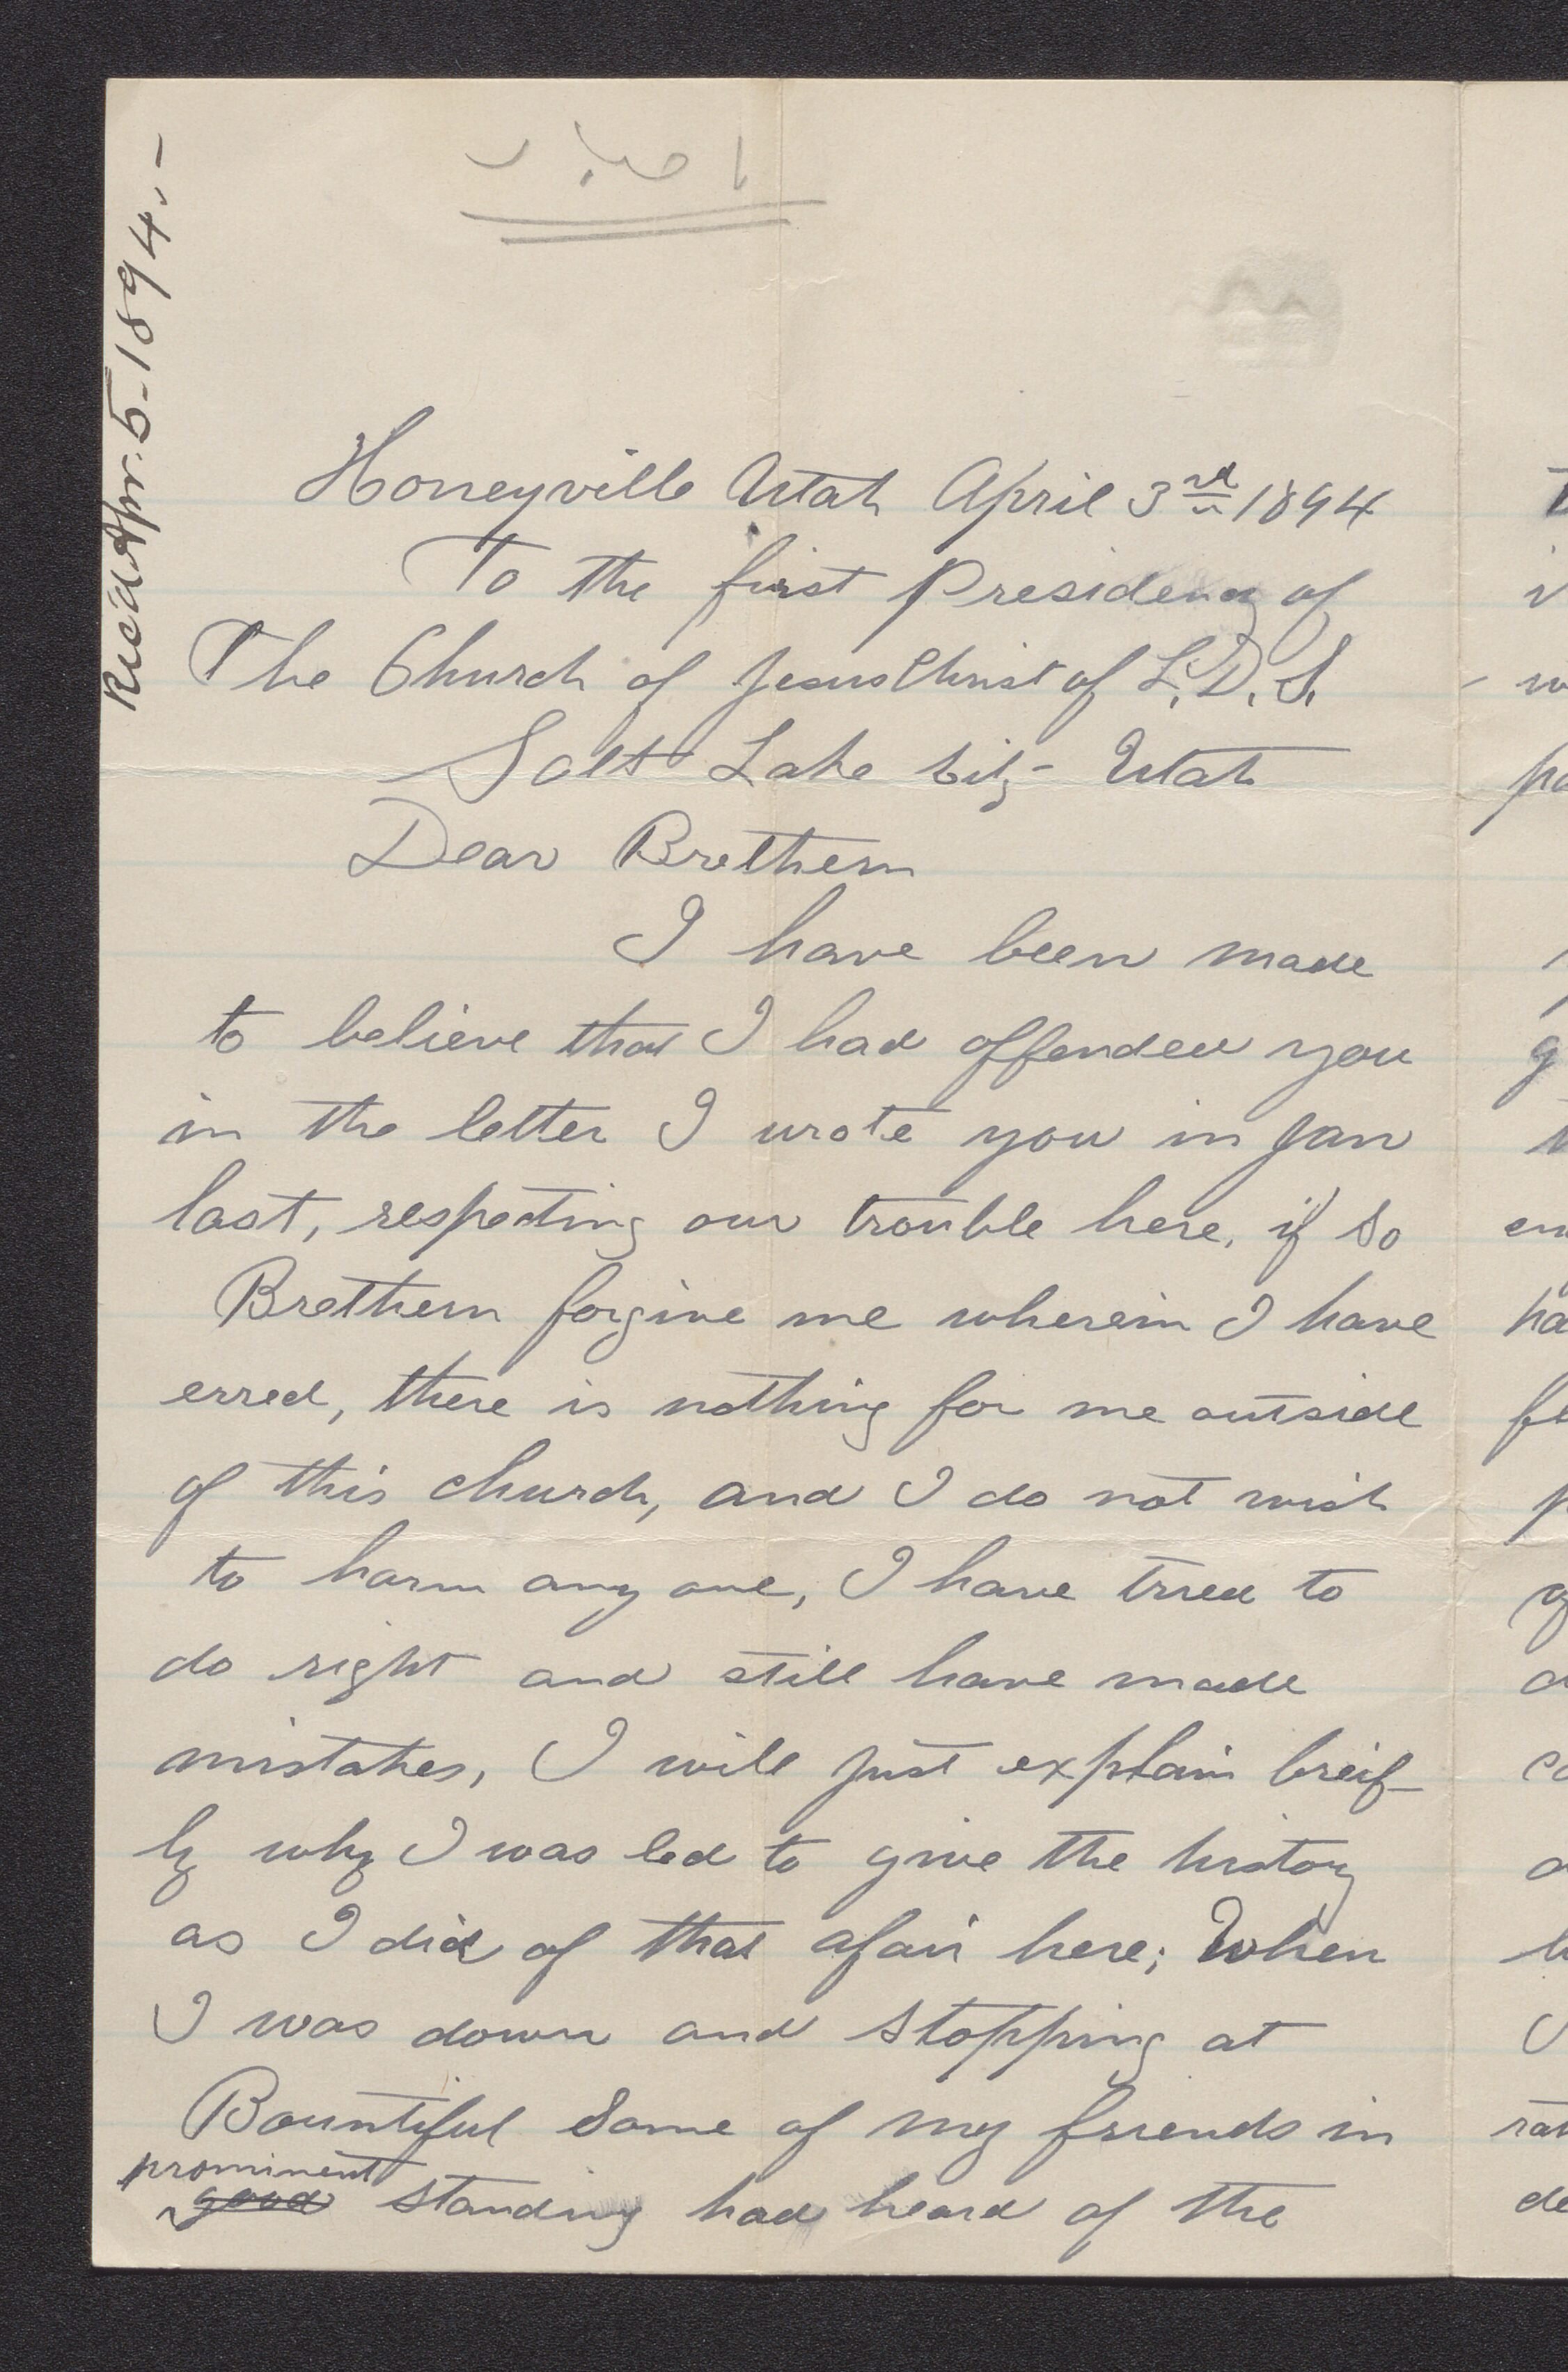 Rec'd Apr. 5-1894.-
Honeyville Utah April 3rd 1894
To the first Presidency of
The Church of Jesus Christ of L.D.S.
Salt Lake City- Utah
Dear Brethern
I have been made
to believe that I had offended you
in the letter I wrote you in Jan
last, respecting our trouble here, if so
Brethern forgive me wherein I have
erred, there is nothing for me outside
of this church, and I do not wish
to harm any one, I have tried to
do right and still have made
mistakes, I will just explain breif-
ly why I was led to give the history
as I did of that afair here; When
I was down and stopping at
Bountiful Some of my friends in
prominent
good standing had heard of the